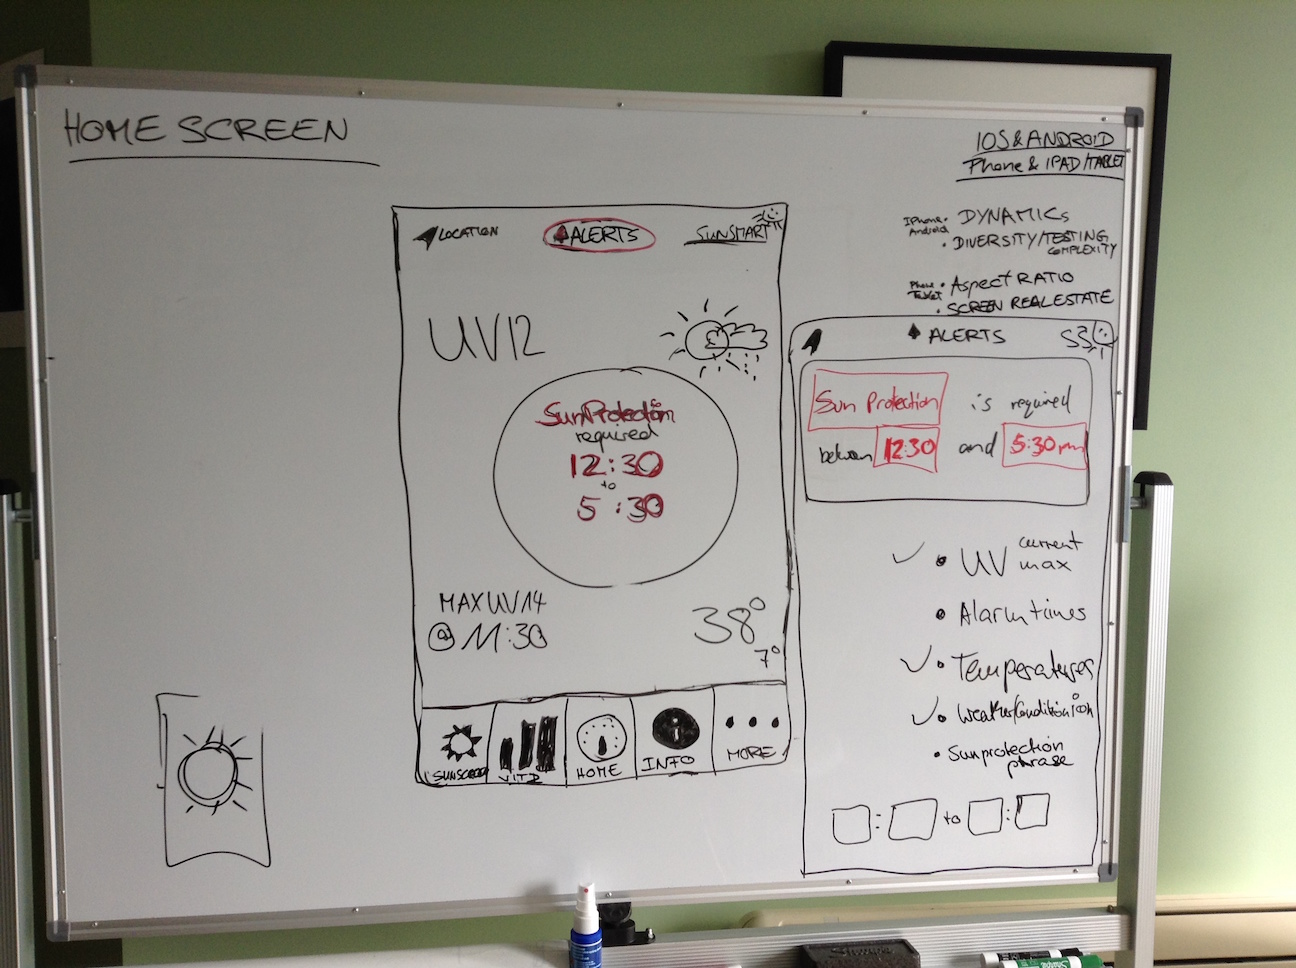 HOME SCREEN
IOS & ANDROID
Phone & IPAD/TABLET
IPhone • DYNAMICS
Android • DIVERSITY/TESTING
COMPLEXITY
Phone • Aspect RATIO
Tablet • SCREEN REAL ESTATE
LOCATION
ALERTS
SUNSMART
UV 12
Sun Protection
required
12:30
to
5:30
MAX UV 14
@ 11:30
38°
7°
SUNSCREEN
VIT D
HOME
INFO
MORE
ALERTS
Sun Protection is required
between 12:30 and 5:30 pm
• UV current
max
• Alarm times
• Temperatures
• Weather/Condition icon
• Sunprotection
phrase
: to :